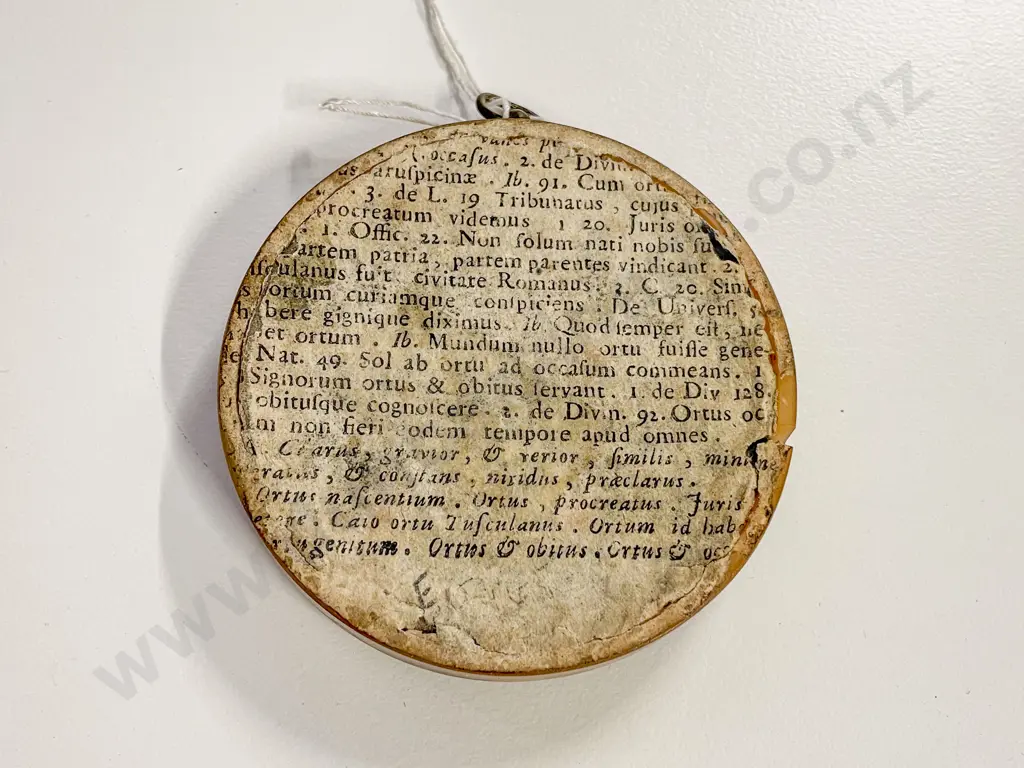 occasus. 2. de Divin.
aruspicinæ. Ib. 91. Cum
3. de L. 19 Tribunatus, cujus
procreatum videmus 1 20. Juris
1. Offic. 22. Non ſolum nati nobis
partem patria, partem parentes vindicant. 2.
ſculanus fuit civitate Romanus. 2. C. 20.
ortum curiamque conſpiciens. De Univerſ.
bere gignique diximus. Ib. Quod ſemper eſt, ne
et ortum. Ib. Mundum nullo ortu fuiſſe gene-
Nat. 49. Sol ab ortu ad occaſum commeans. 1
Signorum ortus & obitus ſervant. 1. de Div 128.
obituſque cognoſcere. 2. de Divin. 92. Ortus oc
m non fieri eodem tempore apud omnes.
Clarus, gravior, & ſimilis,
& conſtans, nitidus, præclarus.
Ortus naſcentium. Ortus, procreatus. Juris
Caio ortu Tuſculanus. Ortum id hab
ingenitum. Ortus & obitus. Ortus & occ
www.
.co.nz